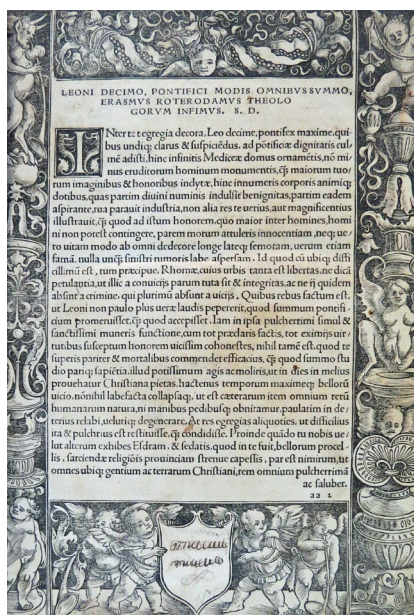 LEONI DECIMO, PONTIFICI MODIS OMNIBVS SVMMO,
ERASMVS ROTERODAMVS THEOLO
GORVM INFIMVS. S. D.
INter tot egregia decora, Leo decime, pontifex maxime, qui
bus undiq; clarus & suspiciēdus, ad pōtificiæ dignitatis cul
mē adisti, hinc infinitis Mediceæ domus ornamētis, nō mi
nus eruditorum hominum monumentis, q̄ maiorum tuo
rum imaginibus & honoribus inclytæ, hinc innumeris corporis animiq;
dotibus, quas partim diuini numinis indulsit benignitas, partim eadem
aspirante, tua parauit industria, non alia res te uerius, aut magnificentius
illustrauit, q̄ quod ad istum honorem, quo maior inter homines, homi
ni non potest contingere, parem morum attuleris innocentiam, neq; ue
ro uitam modo ab omni dedecore longe lateq; semotam, uerum etiam
famā, nulla unq̄ sinistri rumoris labe aspersam. Id quod cū ubiq; diffi
cillimū est, tum præcipue Rhomæ, cuius urbis tanta est libertas, ne dicā
petulantia, ut illic a conuicijs parum tuta sit & integritas, ac ne ij quidem
absint a crimine, qui plurimū absunt a uicijs. Quibus rebus factum est,
ut Leoni non paulo plus ueræ laudis pepererit, quod summum pontifi
cium promeruisset, q̄ quod accepisset. Iam in ipsa pulcherrimi simul &
sanctissimi muneris functione, cum tot præclaris factis, tot eximijs uir
tutibus susceptum honorem uicissim cohonestes, nihil tamē est, quod te
superis pariter & mortalibus commendet efficacius, q̄ quod summo stu
dio pariq; sapiētia, illud potissimum agis ac moliris, ut in dies in melius
prouehatur Christiana pietas, hactenus temporum maximeq; bellorū
uicio, nōnihil labefacta collapsaq;, ut est cæterarum item omnium rerū
humanarum natura, ni manibus pedibusq; obnitamur, paulatim in de/
terius relabi, uelutiq; degenerare. At res egregias aliquoties, ut difficilius
ita & pulchrius est restituisse, q̄ condidisse. Proinde quādo tu nobis ue/
lut alterum exhibes Esdram, & sedatis, quod in te fuit, bellorum procel
lis, sarciendæ religiōis prouinciam strenue capessis, par est nimirum, ut
omnes ubiq; gentium ac terrarum Christiani, rem omnium pulcherrimā
ac saluber.
aa 2